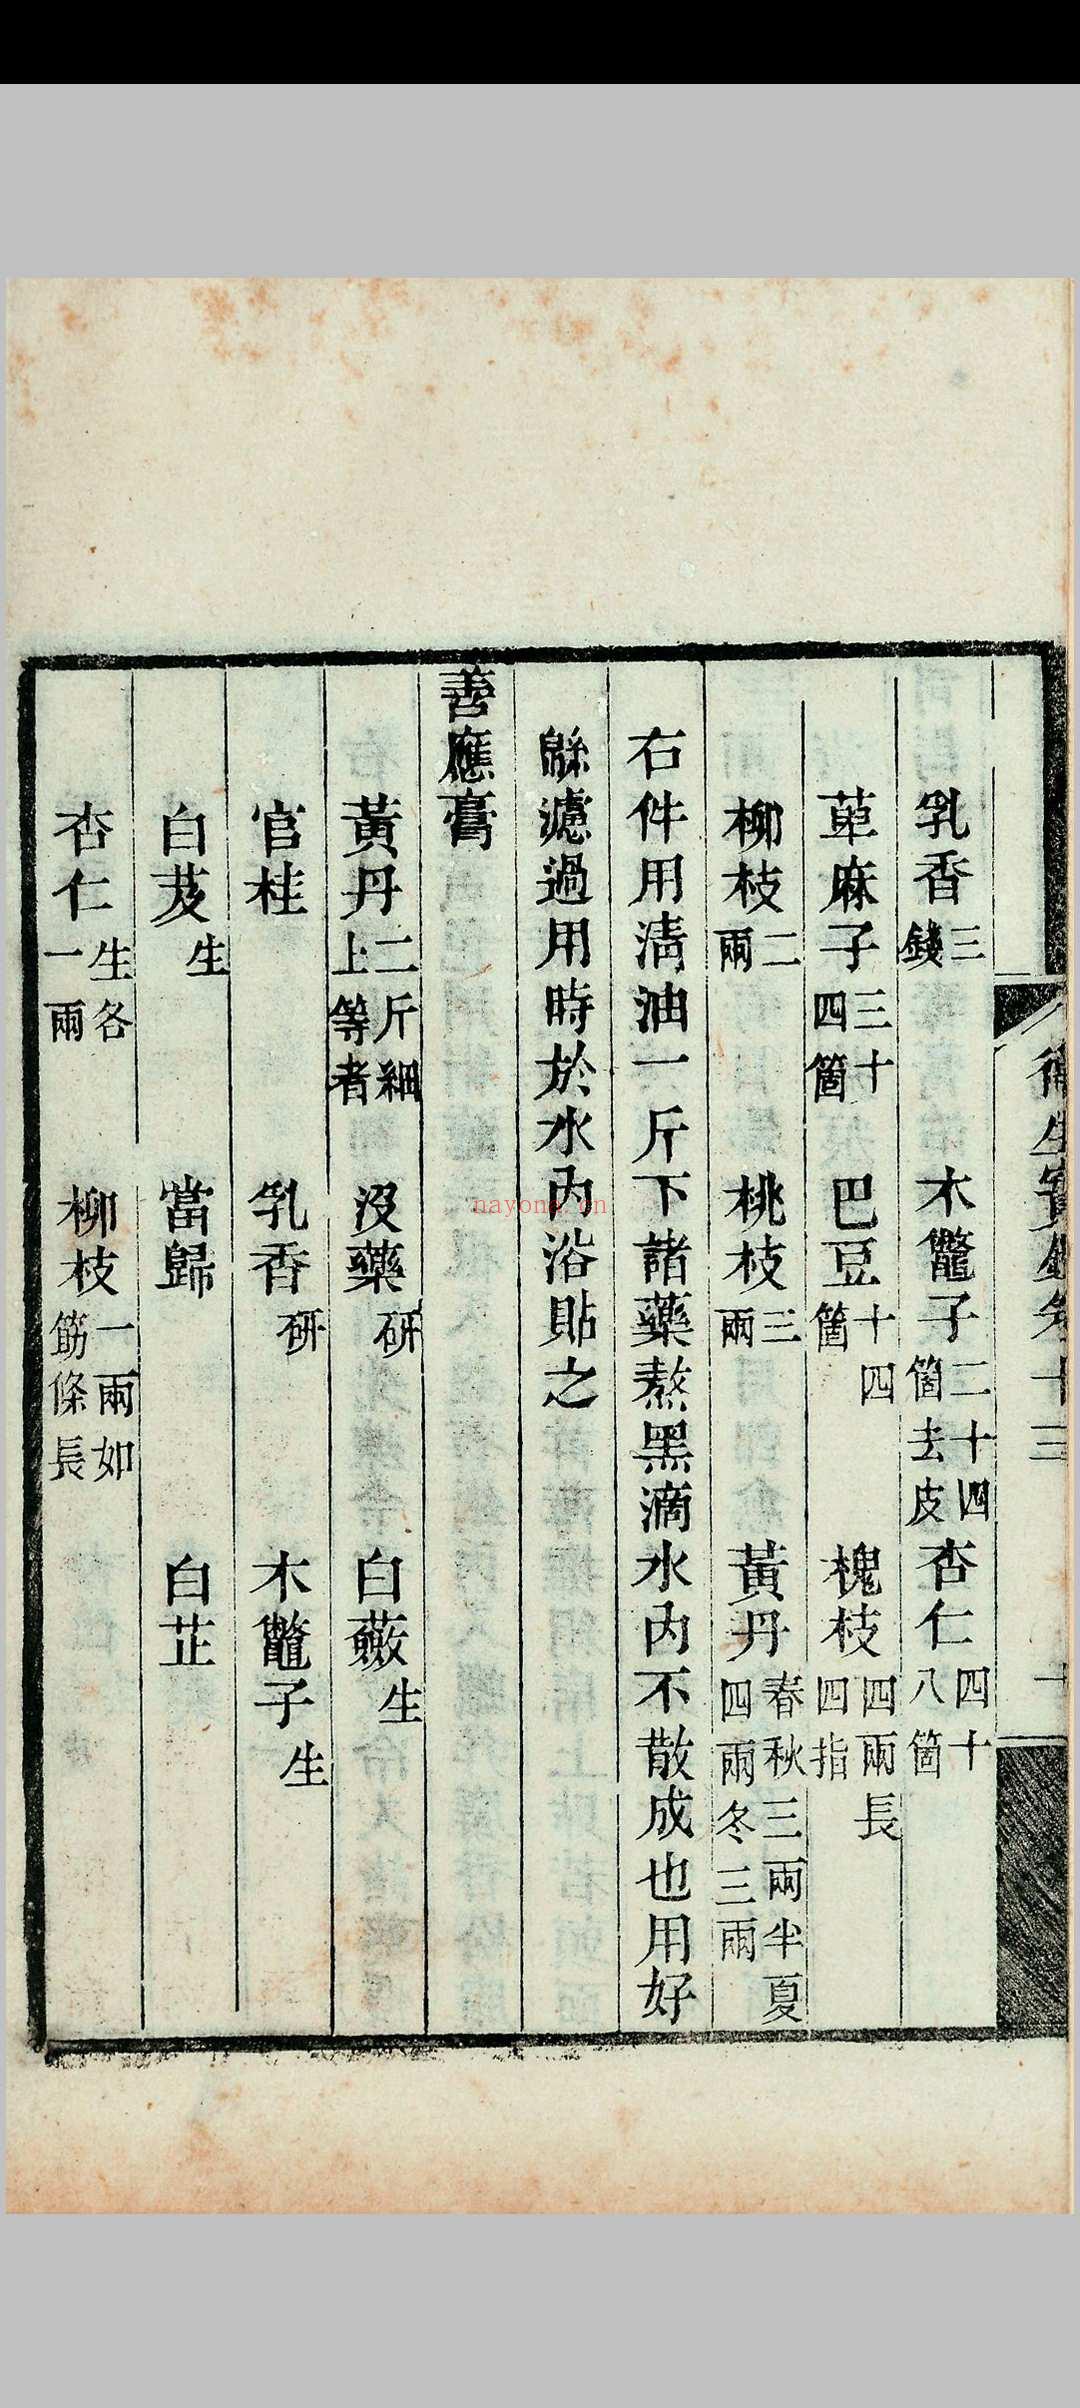 衛生寶鑑卷十三 十
乳香三錢 木鼈子二十四箇去皮 杏仁四十八箇
萆麻子三十四箇 巴豆十四箇 槐枝四兩長四指
柳枝二兩 桃枝三兩 黃丹春秋三兩半夏四兩冬三兩
右件用清油一斤下諸藥熬黑滴水內不散成也用好
緜濾過用時於水內浴貼之
善應膏
黃丹二斤細上等者 沒藥研 白蘞生
官桂 乳香研 木鼈子生
白芨生 當歸 白芷
杏仁生各一兩 柳枝一兩如筯條長
nayona.cn